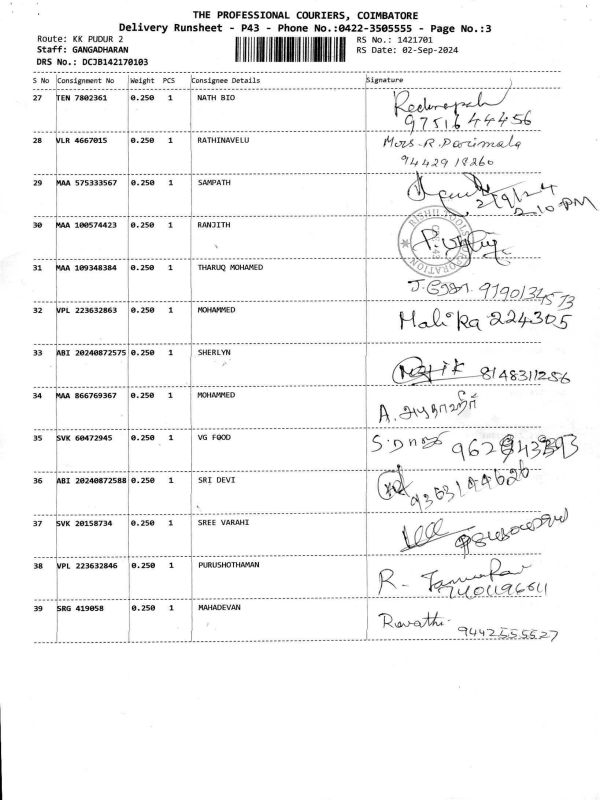 THE PROFESSIONAL COURIERS, COIMBATORE
Delivery Runsheet - P43 - Phone No.:0422-3505555 - Page No.:3
Route: KK PUDUR 2
RS No.: 1421701
Staff: GANGADHARAN
RS Date: 02-Sep-2024
DRS No.: DCJB142170103
S No Consignment No Weight PCS Consignee Details Signature
27 TEN 7802361 0.250 1 NATH BIO
9751644456
28 VLR 4667015 0.250 1 RATHINAVELU Mrs. R. Parimala
9442918260
29 MAA 575333567 0.250 1 SAMPATH
2/9/24
2.10 PM
30 MAA 100574423 0.250 1 RANJITH
RISHII TOOLS CORPORATION
31 MAA 109348384 0.250 1 THARUQ MOHAMED
32 VPL 223632863 0.250 1 MOHAMMED Malika 224305
33 ABI 20240872575 0.250 1 SHERLYN
8148311256
34 MAA 866769367 0.250 1 MOHAMMED
A.
35 SVK 60472945 0.250 1 VG FOOD
36 ABI 20240872588 0.250 1 SRI DEVI
37 SVK 20158734 0.250 1 SREE VARAHI
38 VPL 223632846 0.250 1 PURUSHOTHAMAN
R.
39 SRG 419058 0.250 1 MAHADEVAN Revathi
9442555527